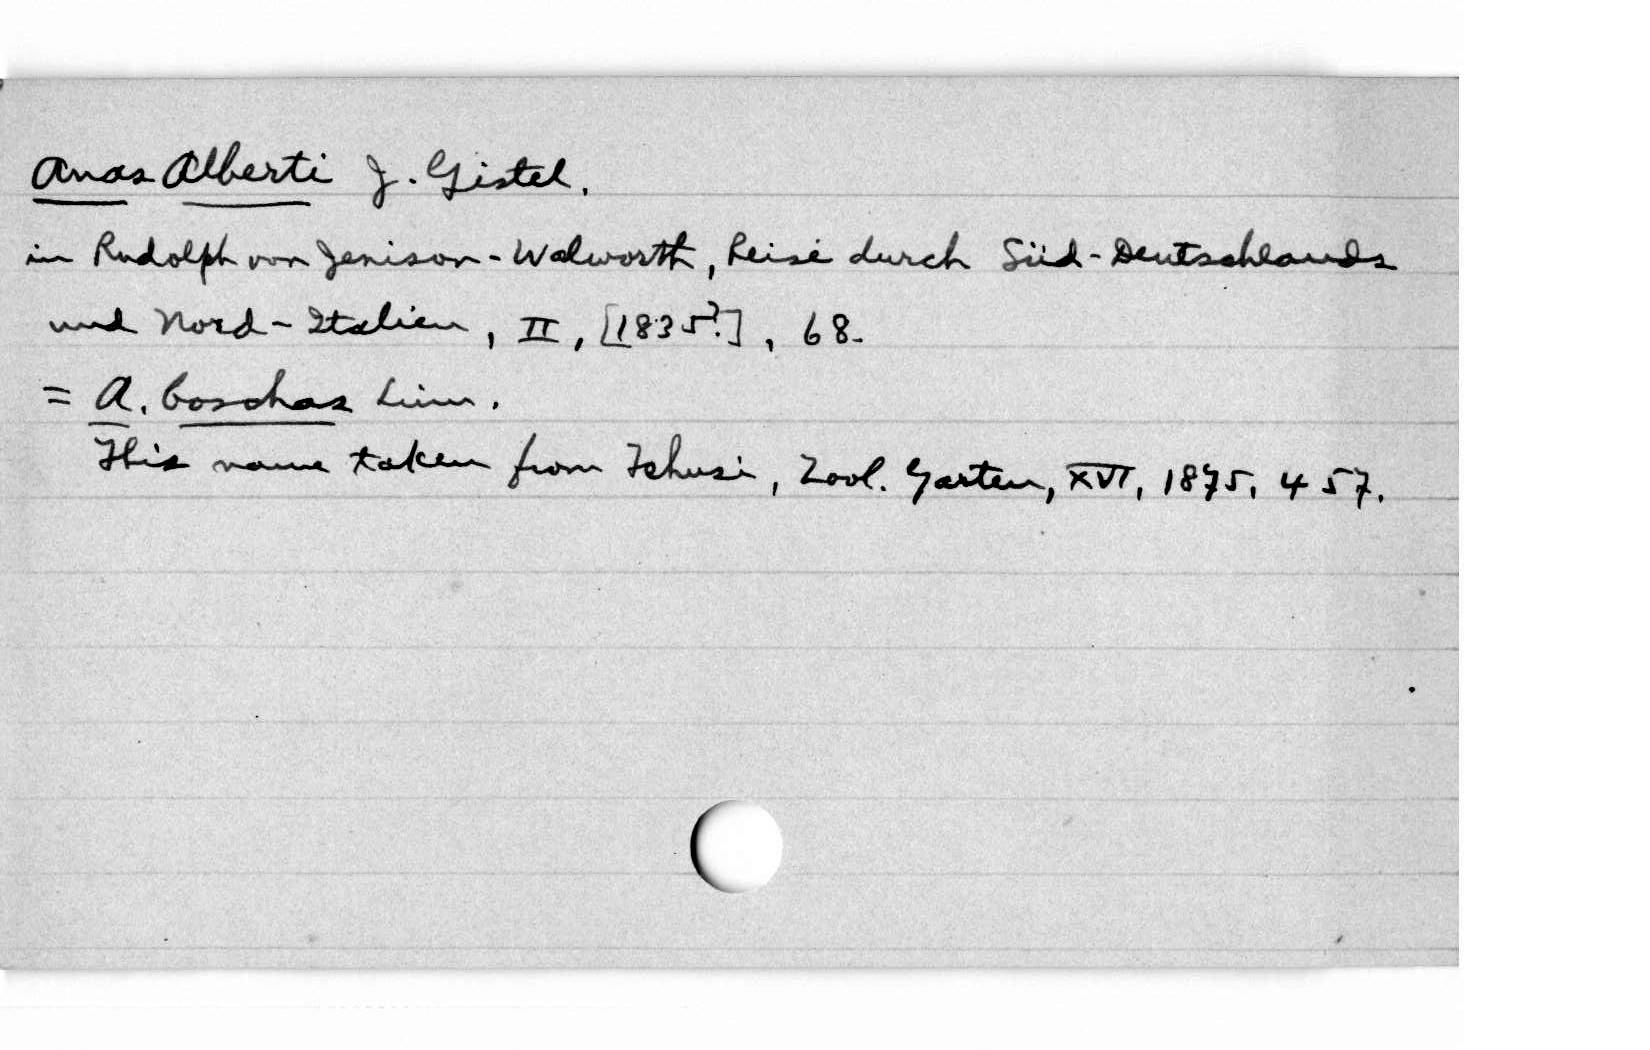 Anas Alberti J. Gistel.
in Rudolph von Jenison-Walworth, Reise durch Süd-Deutschlands
und Nord-Italien, II, [1835?], 68.
= A. boschas Linn.
This name taken from Tchusi, Zool. Garten, XVI, 1875, 457.